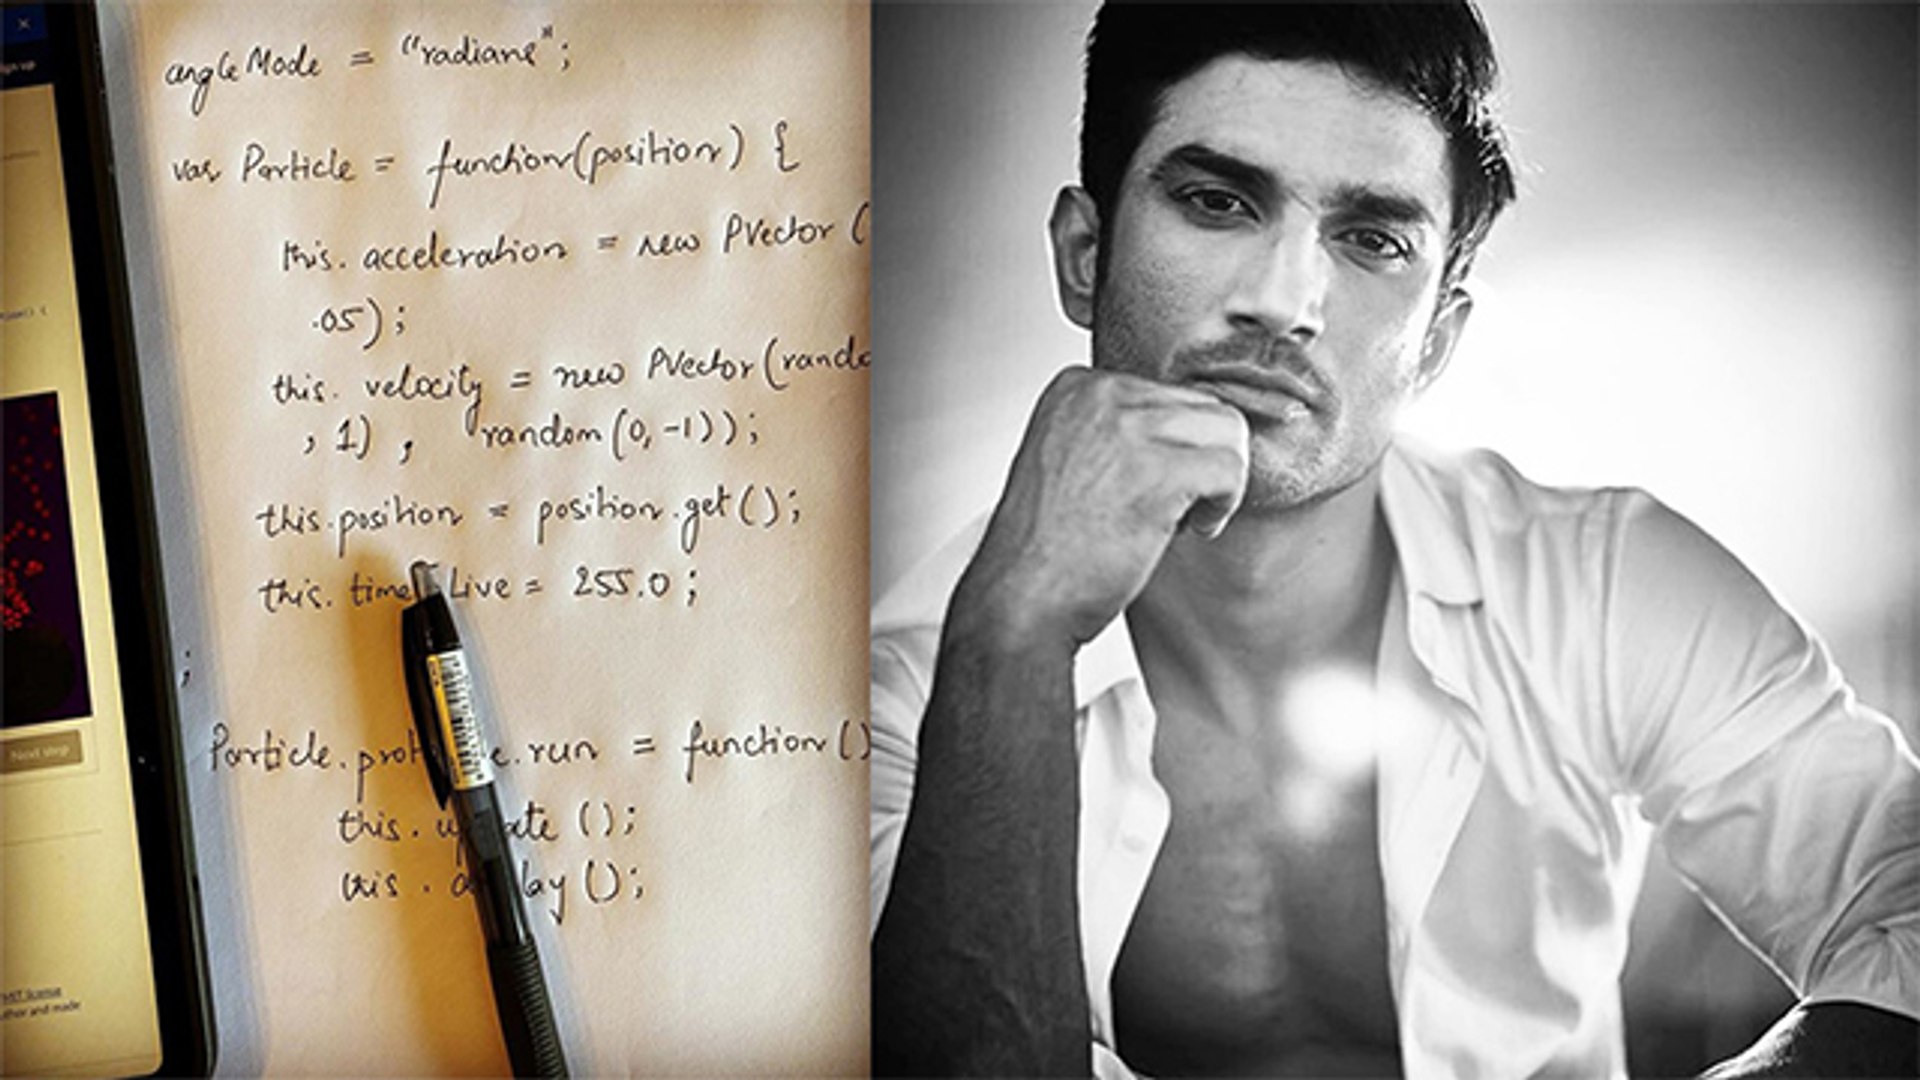 angleMode = "radians";
var Particle = function(position) {
this.acceleration = new PVector (
.05);
this. velocity = new PVector(rando
, 1) , random (0, -1));
this.position = position.get();
this. time Live = 255.0 ;
;
Particle. .run = function ()
this. ();
this . ();
Next step
MIT license
and made